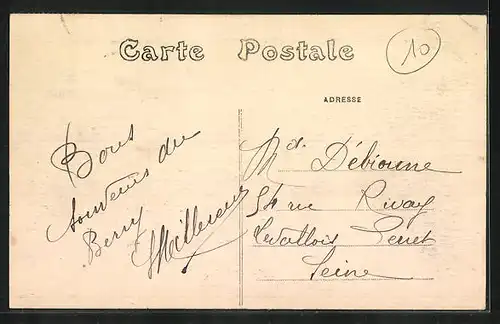 Carte Postale
10
ADRESSE
Bons
souvenirs du
Berry
Md. Débionne
54 rue Rivay
Levallois Perret
Seine